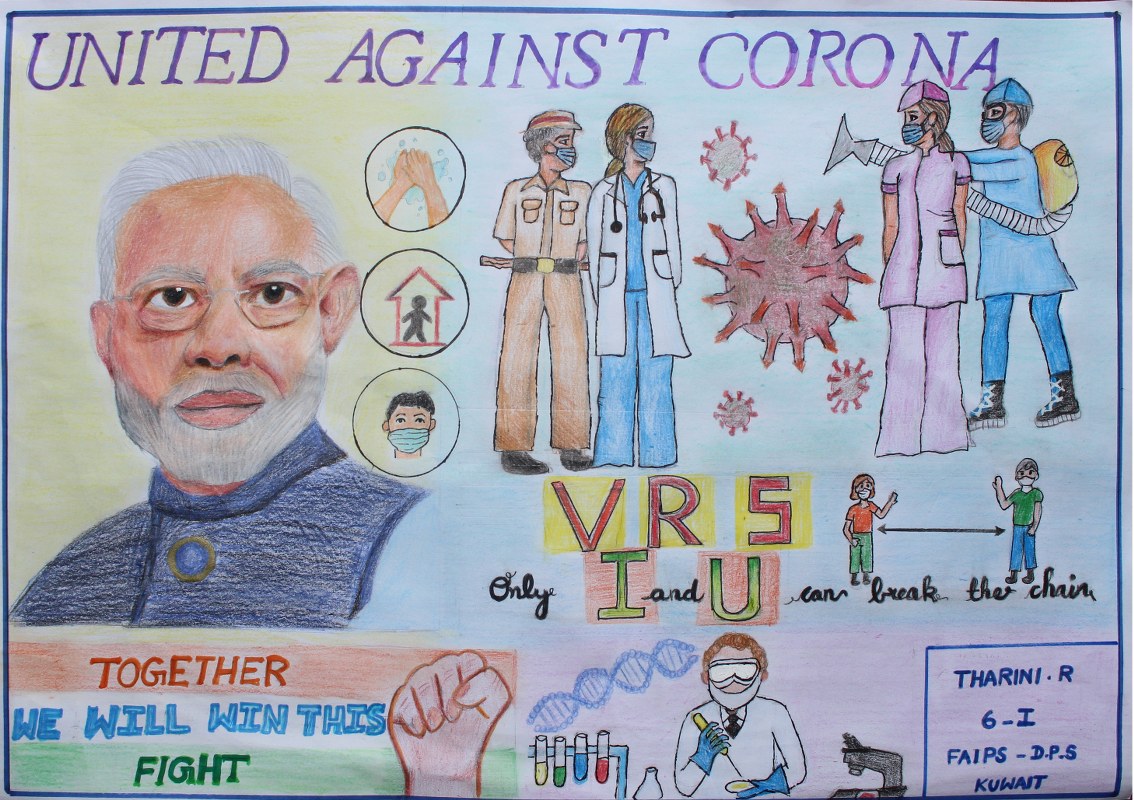 UNITED AGAINST CORONA
V R S
Only I and U can break the chain
TOGETHER
WE WILL WIN THIS
FIGHT
THARINI.R
6-I
FAIPS-D.P.S
KUWAIT